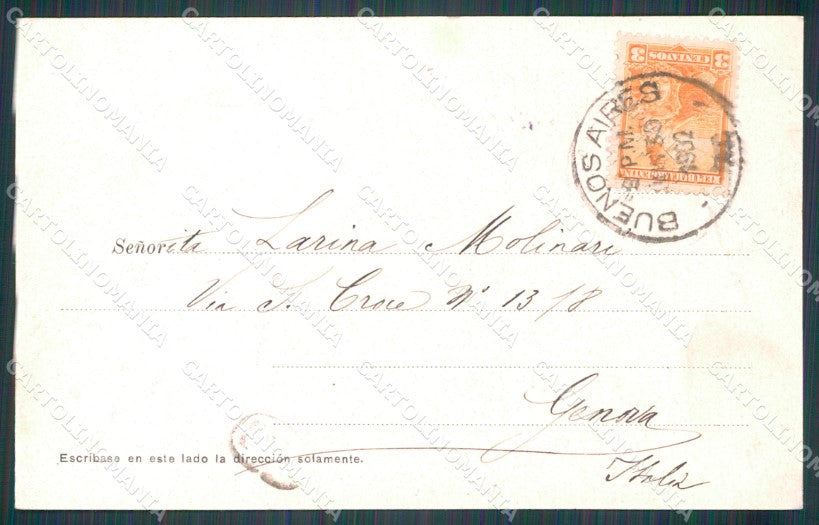 3 CENTAVOS 3
REPUBLICA ARGENTINA
BUENOS AIRES
1902
Señorita Larina Molinari
Via S. Croce Nº 13/8
Genova
Italia
Escríbase en este lado la dirección solamente.
CARTOLINOMANIA